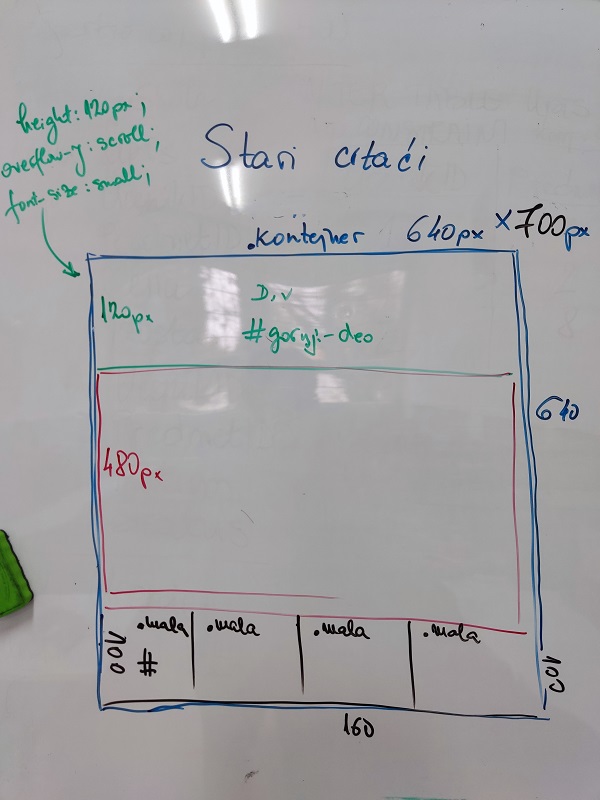 height: 120px;
overflow-y: scroll;
font-size: small;
Stari crtaći
.kontejner 640px × 700px
120px
Div
#gornji-deo
640
480px
.mala .mala .mala .mala
100
#
100
160